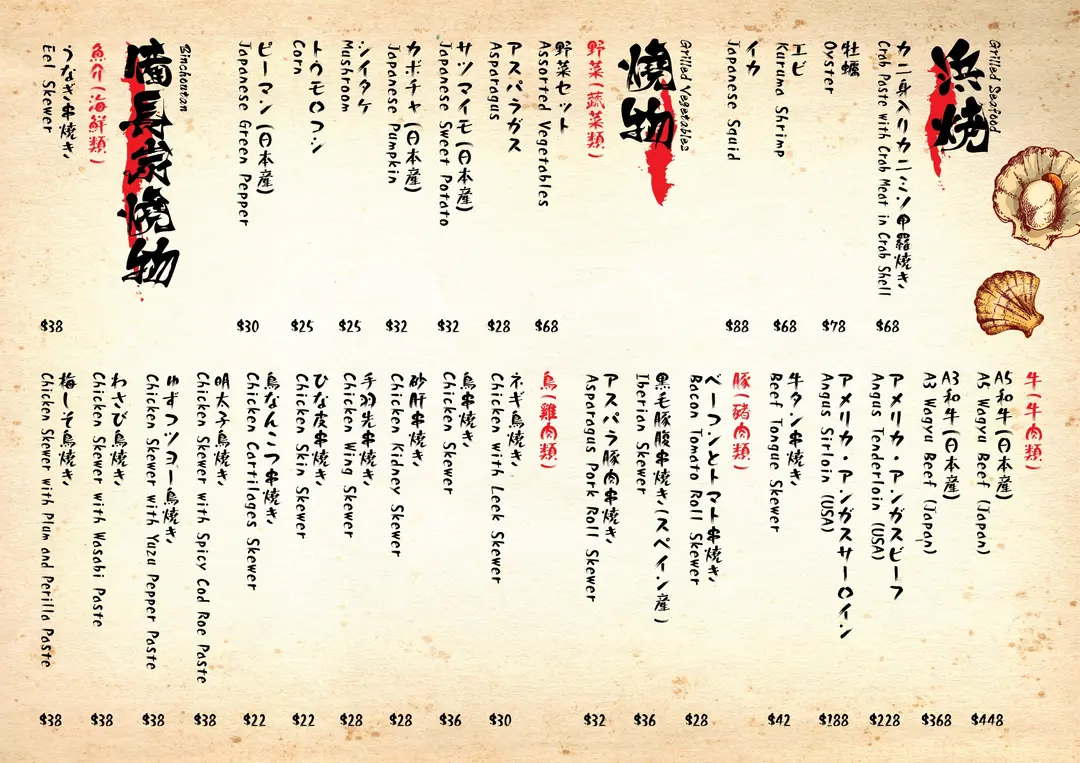 浜焼
Grilled Seafood
カニ身入りカニミソ甲羅焼き
Crab Paste with Crab Meat in Crab Shell
$68
牡蠣
Oyster
$78
エビ
Kuruma Shrimp
$68
イカ
Japanese Squid
$88
燒物
Grilled Vegetables
野菜(蔬菜類)
野菜セット
Assorted Vegetables
$68
アスパラガス
Asparagus
$28
サツマイモ(日本産)
Japanese Sweet Potato
$32
カボチャ(日本産)
Japanese Pumpkin
$32
シイタケ
Mushroom
$25
トウモロコシ
Corn
$25
ピーマン(日本産)
Japanese Green Pepper
$30
備長炭燒物
Binchoutan
魚介(海鮮類)
うなぎ串焼き
Eel Skewer
$38
牛(牛肉類)
A5和牛(日本産)
A5 Wagyu Beef (Japan)
$448
A3和牛(日本産)
A3 Wagyu Beef (Japan)
$368
アメリカ・アンガスビーフ
Angus Tenderloin (USA)
$228
アメリカ・アンガスサーロイン
Angus Sirloin (USA)
$188
牛タン串焼き
Beef Tongue Skewer
$42
豚(豬肉類)
ベーコンとトマト串焼き
Bacon Tomato Roll Skewer
$28
黒毛豚腹串焼き(スペイン産)
Iberian Skewer
$36
アスパラ豚肉串焼き
Asparagus Pork Roll Skewer
$32
鳥(雞肉類)
ネギ鳥焼き
Chicken with Leek Skewer
$30
鳥串焼き
Chicken Skewer
$36
砂肝串焼き
Chicken Kidney Skewer
$28
手羽先串焼き
Chicken Wing Skewer
$28
ひな皮串焼き
Chicken Skin Skewer
$22
鳥なんこつ串焼き
Chicken Cartilages Skewer
$22
明太子鳥焼き
Chicken Skewer with Spicy Cod Roe Paste
$38
ゆずコショー鳥焼き
Chicken Skewer with Yuzu Pepper Paste
$38
わさび鳥焼き
Chicken Skewer with Wasabi Paste
$38
梅しそ鳥焼き
Chicken Skewer with Plum and Perilla Paste
$38